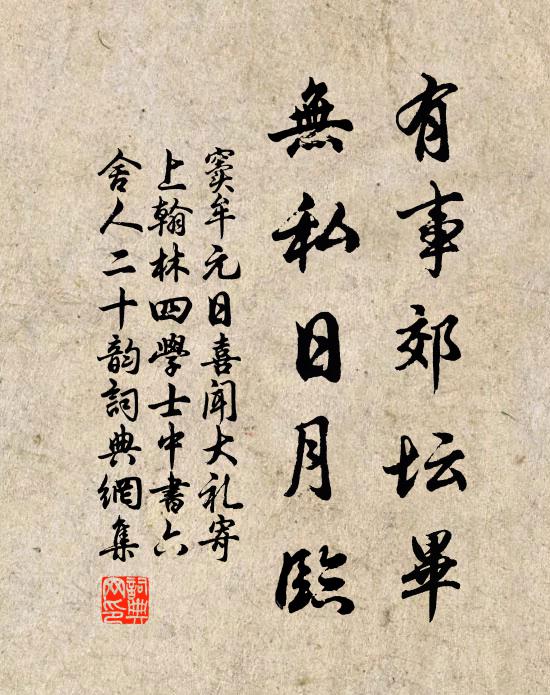 有事郊坛畢
無私日月臨
窦牟元日喜聞大礼寄
上翰林四學士中書六
舍人二十韵詞典網集
詞典网印